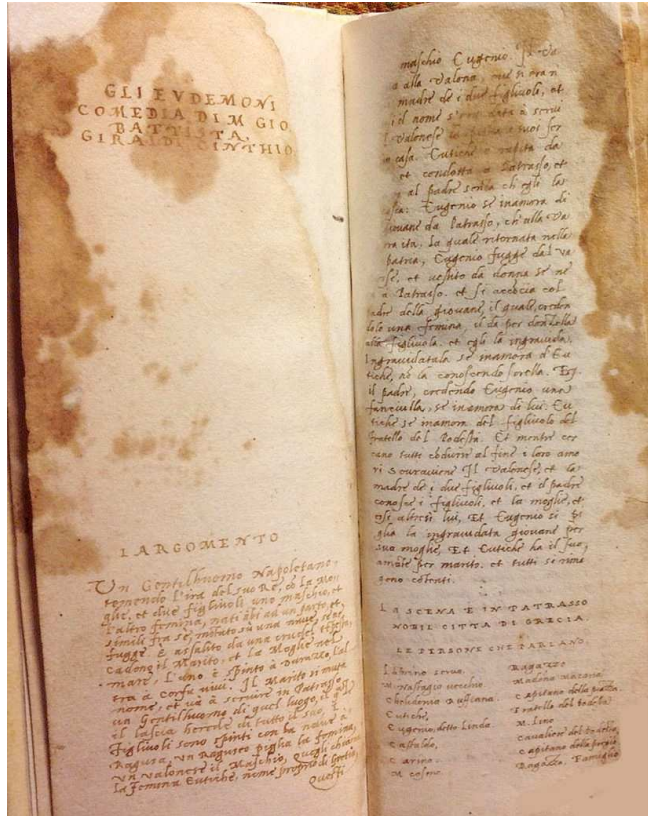 GLI EVDEMONI
COMEDIA DI M GIO
BATTISTA,
GIRALDI CINTHIO
L ARGOMENTO
Vn Gentilhuomo Napoletano,
temendo l'ira del suo Re, cō la Mo
glie, et due figliuoli, uno maschio, et
l'altro femina, nati ābi ad un parto, et
simili fra se, mōtato sù una naue, se ne
fugge. È assalito da una crudel
cadono il Marito, et la Moglie nel
mare. L'uno è spinto à Durazzo, l'al
tra à Corfu viui. Il Marito si muta
nome, et và à seruire in Patrasso
un Gentilhuomo di quel luogo, il qual
il lascia herede di tutto il suo. I
Figliuoli sono spinti con la naue à
Ragusa, un Raguseo piglia la femina,
un valonese il Maschio, Quegli chiama
la femina Eutiche, nome proprio di Grecia,
Questi
maschio Eugenio. Il Va
a alla Valona, oue si eran
madre de i due figliuoli, et
il nome s'era data à serui
l Valonese
in casa. Eutiche è rapita da
et condotta a Patrasso, et
al padre senza ch'egli la
Eugenio se inamora di
giouane da Patrasso, ch'alla Va
la quale ritornata nella
patria, Eugenio fugge dal Va
et uestito da donna se ne
à Patrasso. et si accōcia col
padre della giouane, il quale, creden
dolo una femina, il da per donzella
alla figliuola. et egli la ingrauida.
Ingrauidatala se inamora d'Eu
tiche, nō la conoscendo sorella. Et
il padre, credendo Eugenio una
fanciulla, se inamora di lui. Eu
tiche se inamora del figliuolo del
fratello del Podestà. Et mentre cer
cano tutti cōdurre al fine i loro amo
ri Sourauiene Il Valonese, et la
madre de i due figliuoli, et il padre
conosce i figliuoli, et la moglie, et
essi altresi lui, Et Eugenio si pi
glia la ingrauidata giouane per
sua moglie, Et Eutiche ha il suo
amāte per marito. et tutti se rima
gono cōtenti.
LA SCENA È IN PATRASSO
NOBIL CITTA DI GRECIA.
LE PERSONE CHE PARLANO.
seruo. Ragazzo
M. Nafragio uecchio Madona
Ruffiana. Capitano della piazza.
Eutiche, Fratello del Podestà
Eugenio, detto Lindo. M. Lino
Castaldo, Caualiere del Podestà,
Carino. Capitano della
M Ragazzo. Famiglio